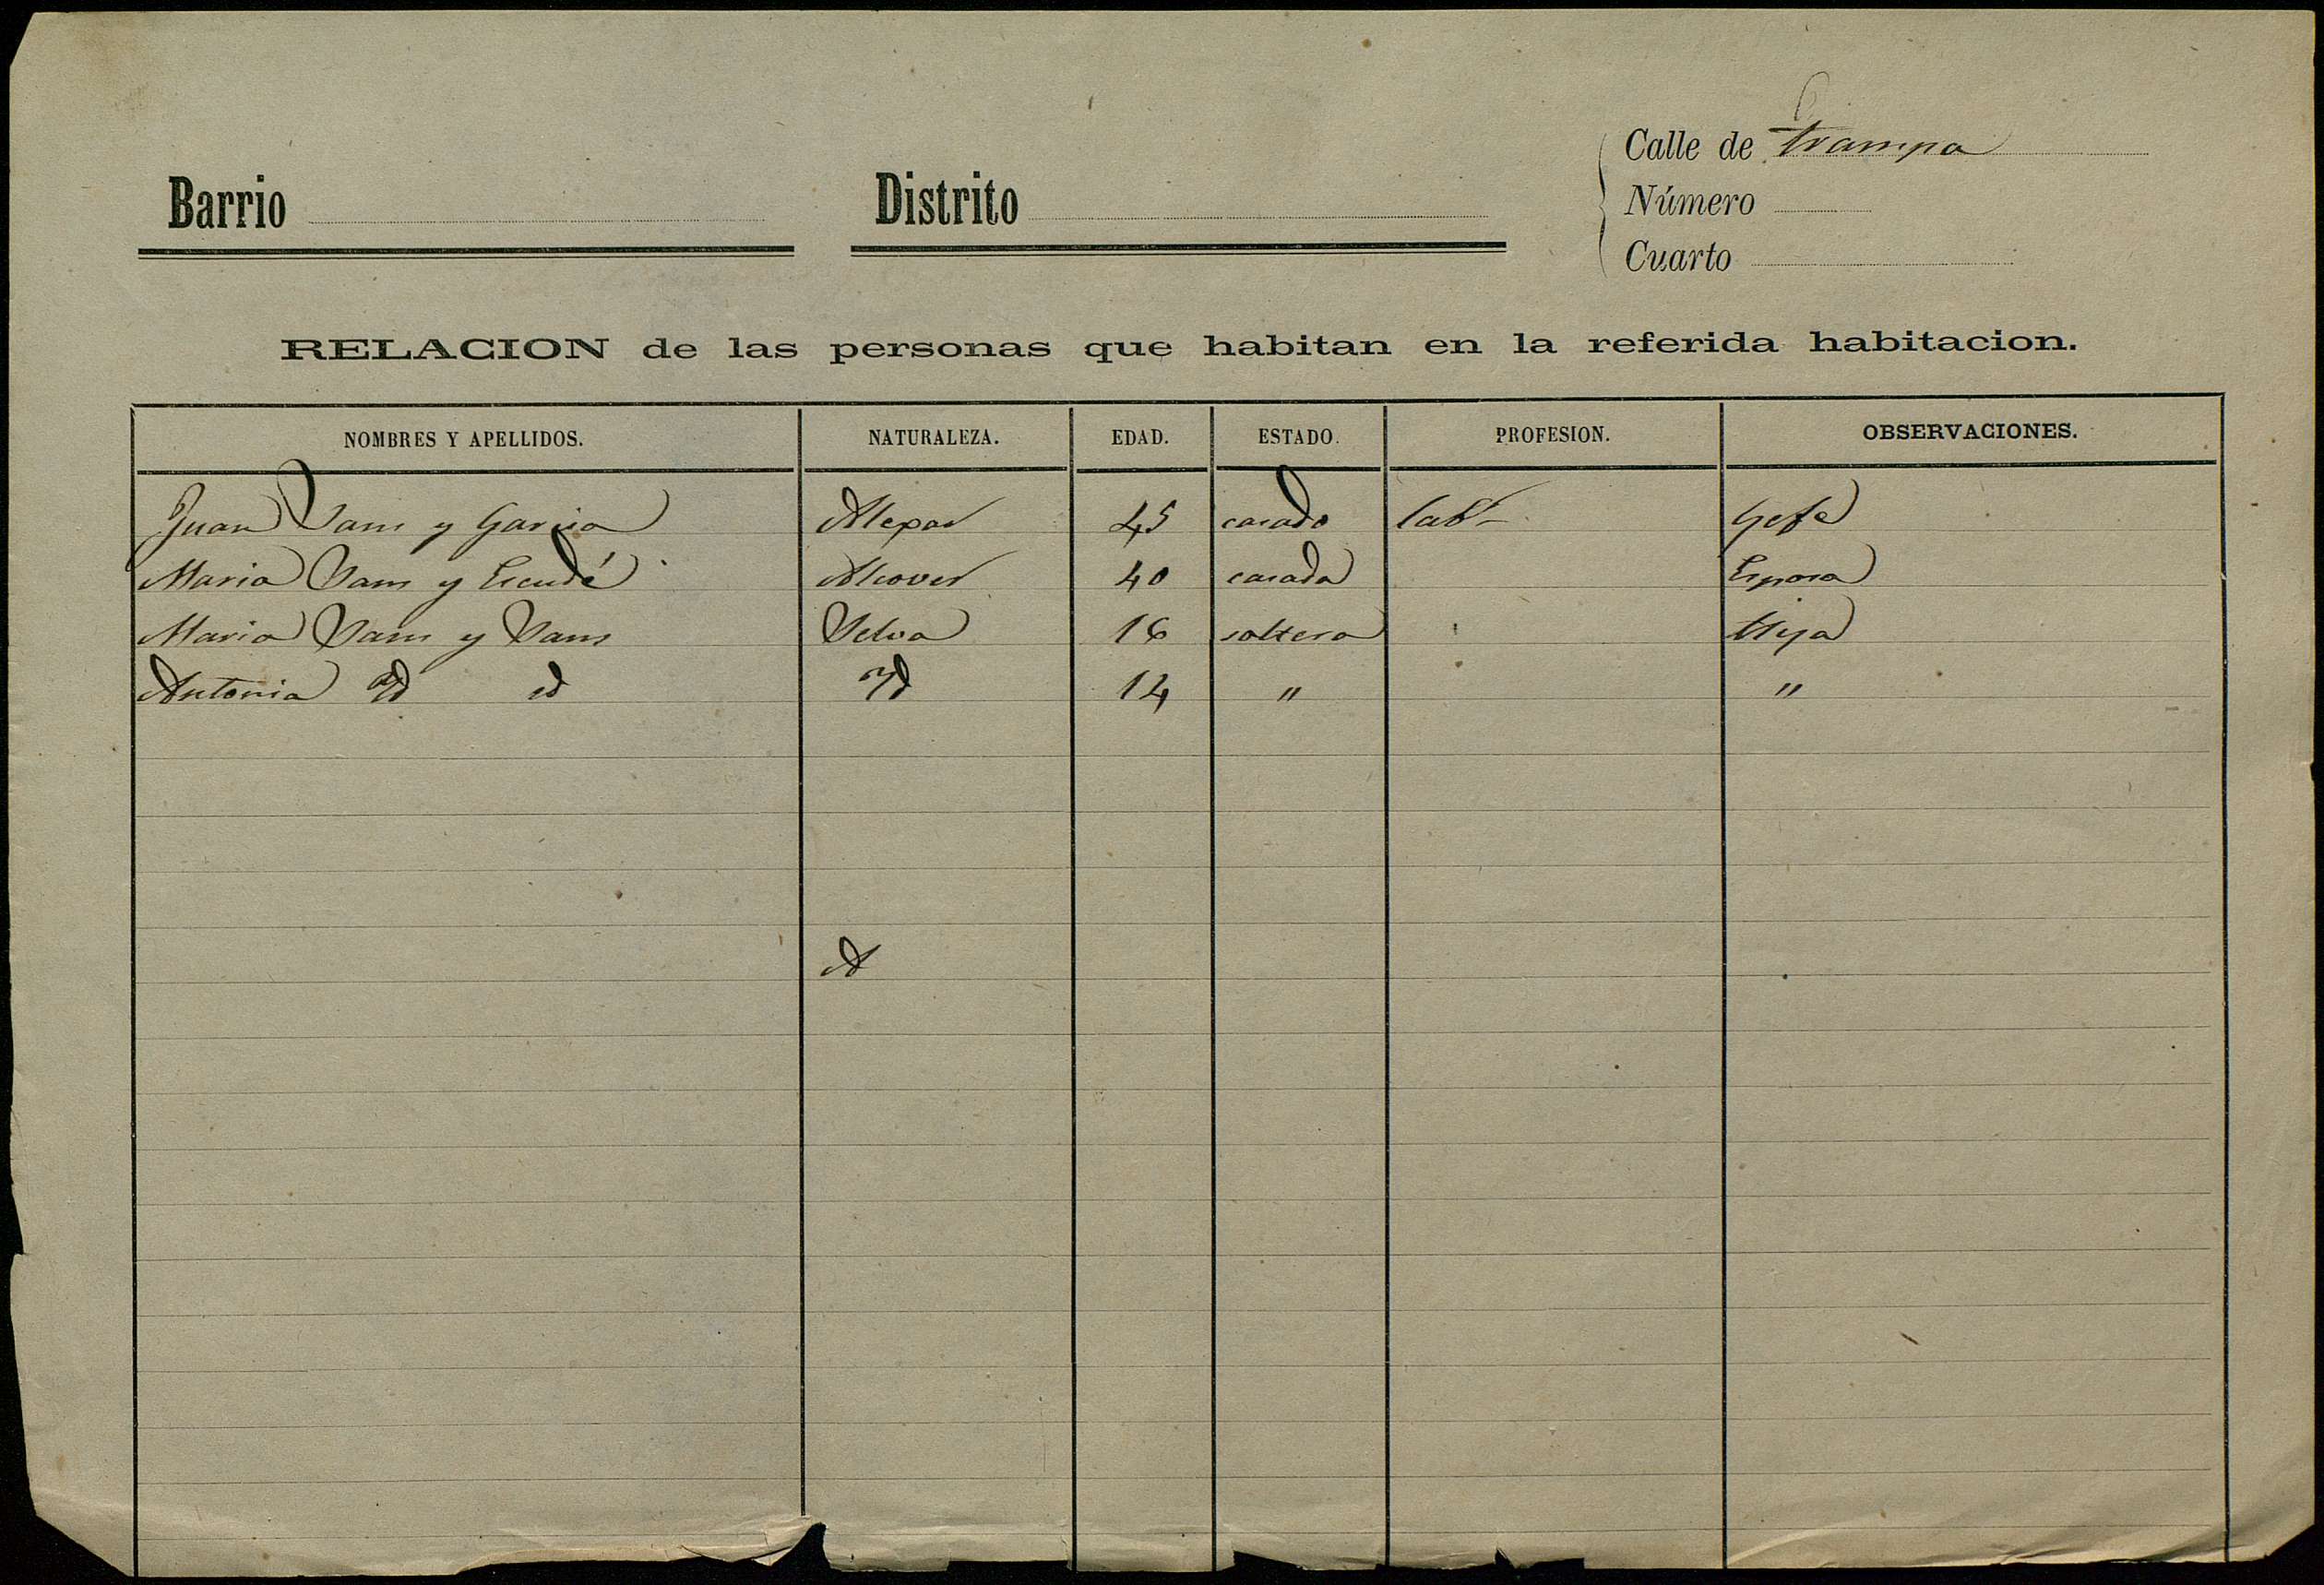 Calle de trampa
Barrio Distrito Número
Cuarto
RELACION de las personas que habitan en la referida habitacion.
NOMBRES Y APELLIDOS. NATURALEZA. EDAD. ESTADO. PROFESION. OBSERVACIONES.
Juan Sans y Garcia Alexar 45 casado labr Gefe
Maria Sans y Escudé Alcover 40 casada Esposa
Maria Sans y Sans Selva 16 soltera Hija
Antonia Yd id Yd 14 " "
A